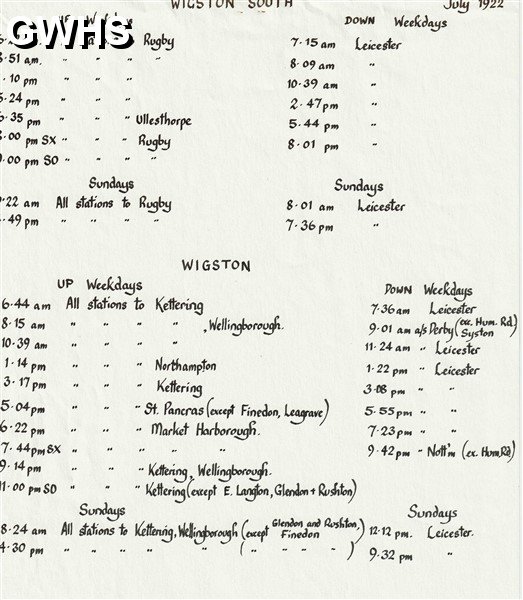 WIGSTON SOUTH July 1922
GWHS
DOWN Weekdays
Rugby
.51 am. " " " "
.10 pm " " " "
5.24 pm " " " "
.35 pm " " " Ullesthorpe
.00 pm SX " " " Rugby
.00 pm SO " " " "
7.15 am Leicester
8.09 am "
10.39 am "
2.47pm "
5.44 pm "
8.01 pm "
Sundays
.22 am All stations to Rugby
.49 pm " " " "
Sundays
8.01 am Leicester
7.36 pm "
WIGSTON
UP Weekdays
6.44 am All stations to Kettering
8.15 am " " " " , Wellingborough.
10.39 am " " " "
1.14 pm " " " Northampton
3.17 pm " " " Kettering
5.04 pm " " " St. Pancras (except Finedon, Leagrave)
6.22 pm " " " Market Harborough.
7.44pm SX " " " " "
9.14 pm " " " Kettering, Wellingborough.
11.00 pm SO " " " Kettering (except E. Langton, Glendon + Rushton)
Sundays
8.24 am All stations to Kettering, Wellingborough (except Glendon and Rushton, Finedon
4.30 pm " " " " " ( " " " " )
DOWN Weekdays
7.36am Leicester
9.01 am a/s Derby (ex. Hum. Rd.) Syston
11.24 am " Leicester
1.22 pm " Leicester
3.08 pm " "
5.55pm " "
7.23pm " "
9.42pm " Nott'm (ex. Hum.Rd)
Sundays
12.12pm. Leicester.
9.32 pm "